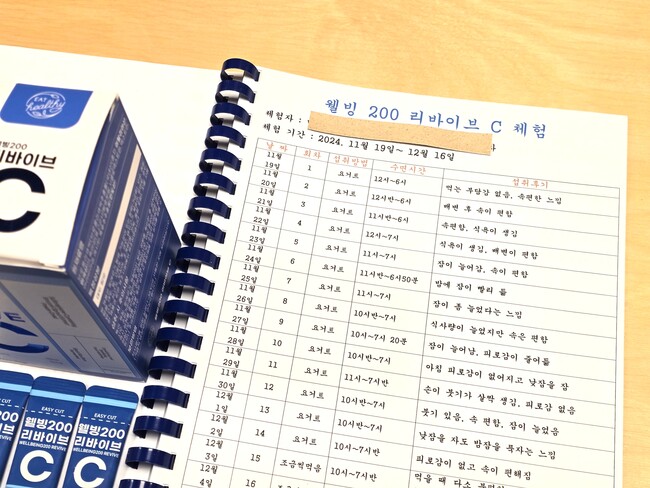 EAT
healthy
웰빙200
리바이브
C
EASY CUT
웰빙200
리바이브
WELLBEING200 REVIVE
C
EASY CUT
웰빙200
리바이브
WELLBEING200 REVIVE
C
웰빙 200 리바이브 C 체험
체험자 :
체험 기간 : 2024. 11월 19일~ 12월 16일
날짜 회차 섭취방법 수면시간 섭취후기
11월 19일 1 요거트 12시~6시 먹는 부담감 없음, 속편한 느낌
11월 20일 2 요거트 12시반~6시 배변 후 속이 편함
11월 21일 3 요거트 11시반~6시 속편함, 식욕이 생김
11월 22일 4 요거트 12시~7시 식욕이 생김, 배변이 편함
11월 23일 5 요거트 11시~7시 잠이 늘어감, 속이 편함
11월 24일 6 요거트 11시반~6시50분 밤에 잠이 빨리 듦
11월 25일 7 요거트 11시~7시 잠이 좀 늘었다는 느낌
11월 26일 8 요거트 10시반~7시 식사량이 늘었지만 속은 편함
11월 27일 9 요거트 10시~7시 20분 잠이 늘어남, 피로감이 줄어듦
11월 28일 10 요거트 10시반~7시 아침 피로감이 없어지고 낮잠을 잠
11월 29일 11 요거트 11시~7시반 손이 붓기가 살짝 생김, 피로감 없음
11월 30일 12 요거트 10시반~7시반 붓기 있음, 속 편함, 잠이 늘었음
12월 1일 13 요거트 10시반~7시 낮잠을 자도 밤잠을 푹자는 느낌
12월 2일 14 요거트 10시~7시반 피로감이 없고 속이 편해짐
12월 3일 15 조금씩먹음 10시~7시반 먹을 때 다소
12월 4일 16